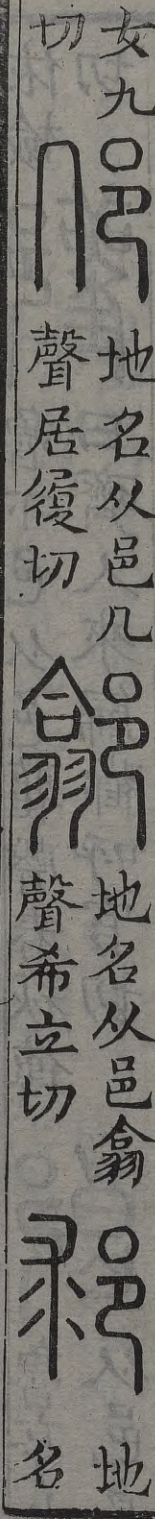 女九
切
地名从邑几
聲居履切
地名从邑翕
聲希立切
地
名